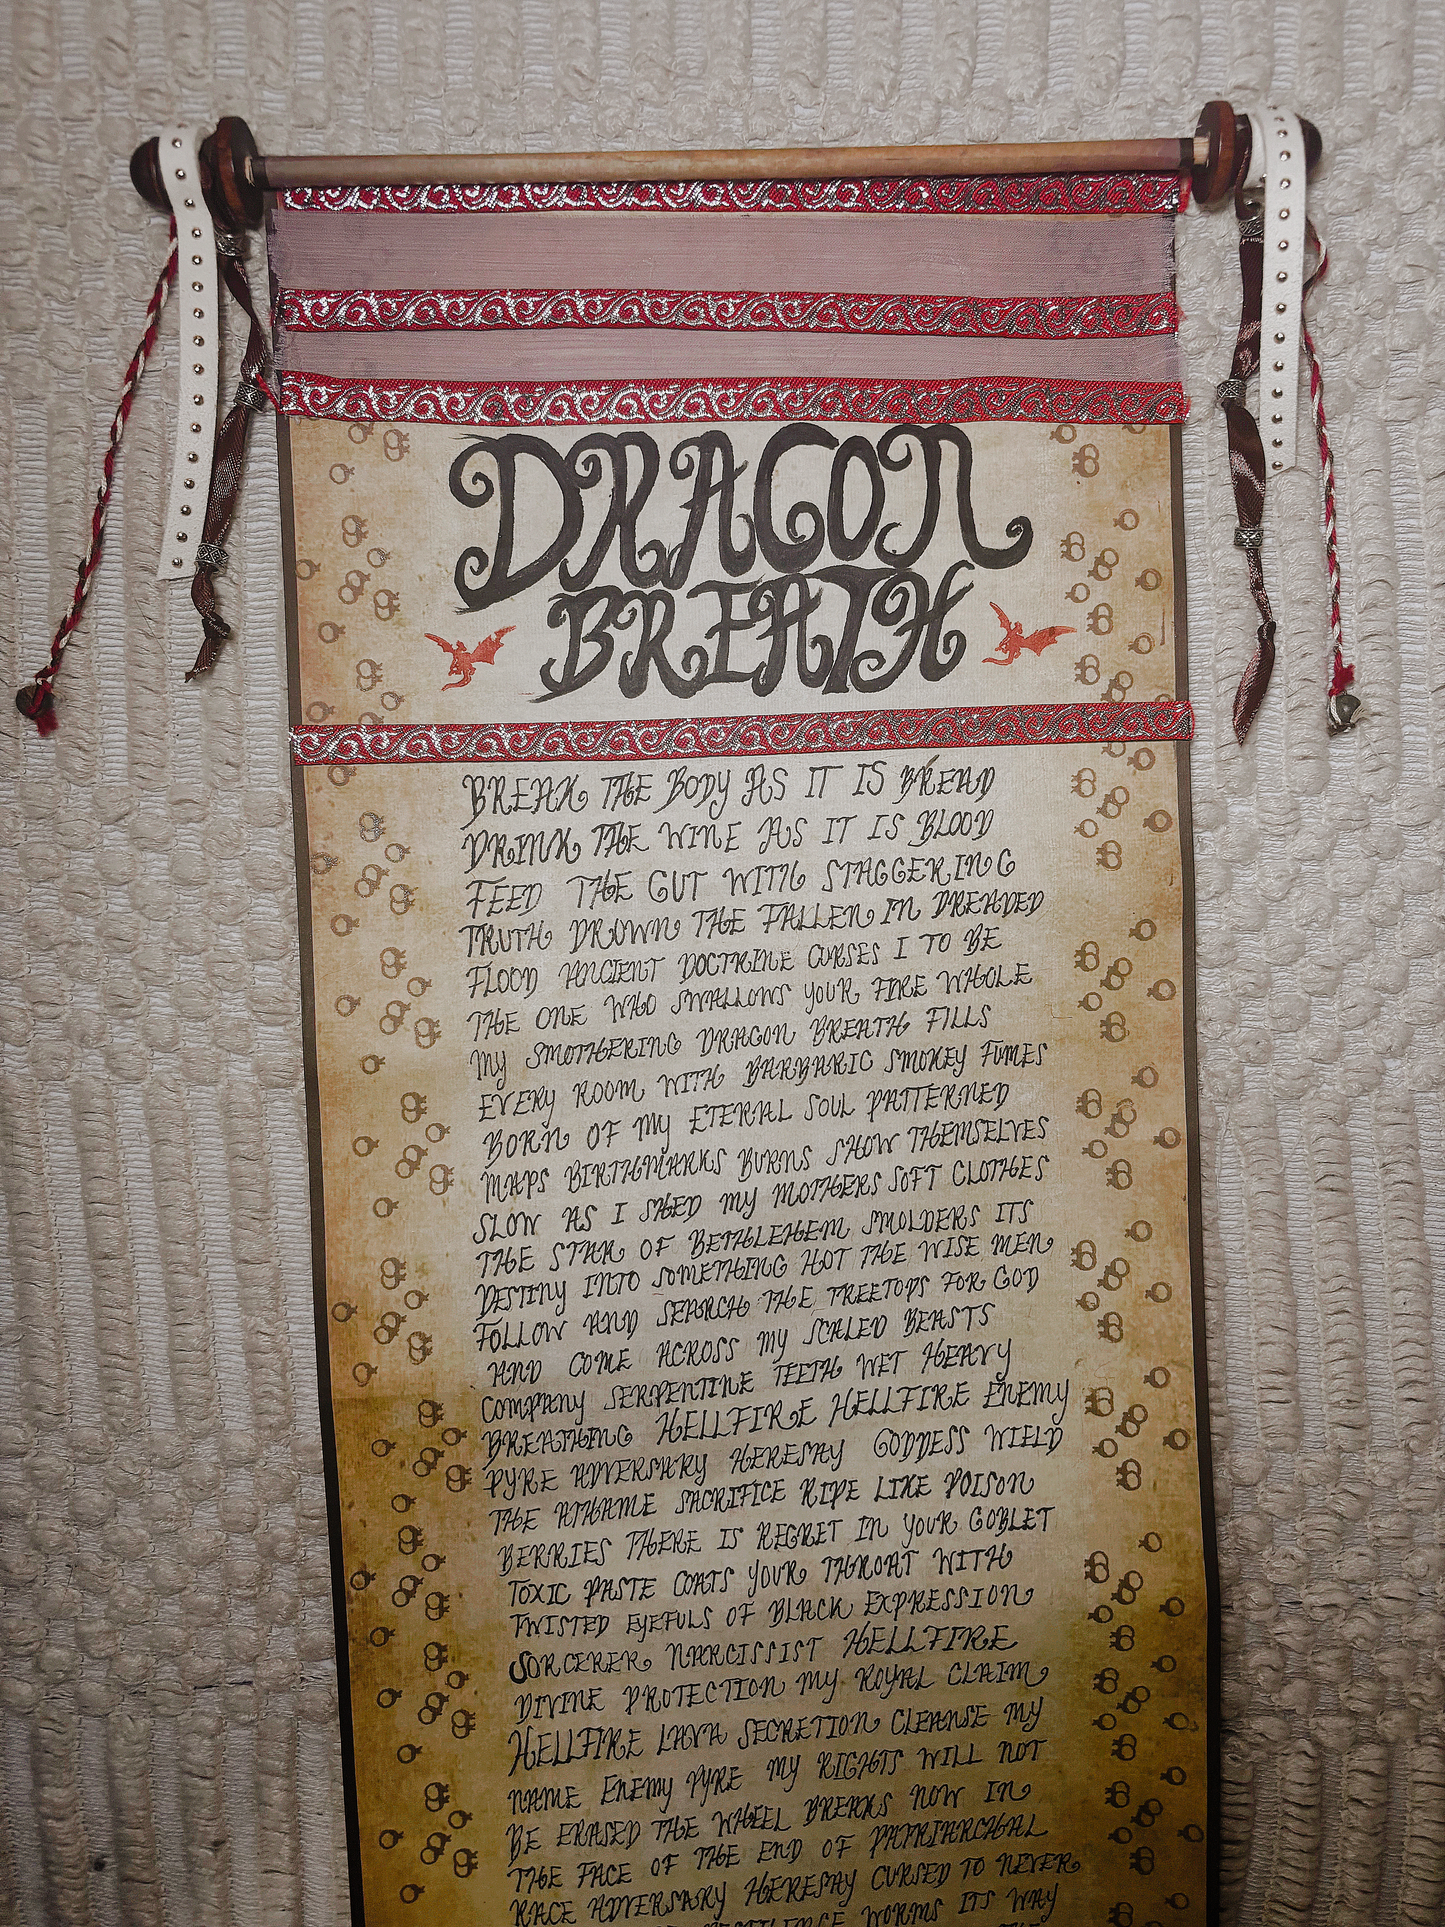 DRAGON
BREATH
BREAK THE BODY AS IT IS BREAD
DRINK THE WINE AS IT IS BLOOD
FEED THE GUT WITH STAGGERING
TRUTH DROWN THE FALLEN IN DREADED
FLOOD ANCIENT DOCTRINE CURSES I TO BE
THE ONE WHO SWALLOWS YOUR FIRE WHOLE
MY SMOTHERING DRAGON BREATH FILLS
EVERY ROOM WITH BARBARIC SMOKEY FUMES
BORN OF MY ETERNAL SOUL PATTERNED
MAPS BIRTHMARKS BURNS SHOW THEMSELVES
SLOW AS I SHED MY MOTHERS SOFT CLOTHES
THE STAR OF BETHLEHEM SMOLDERS ITS
DESTINY INTO SOMETHING HOT THE WISE MEN
FOLLOW AND SEARCH THE TREETOPS FOR GOD
AND COME ACROSS MY SCALED BEASTS
COMPANY SERPENTINE TEETH WET HEAVY
BREATHING HELLFIRE HELLFIRE ENEMY
PYRE ADVERSARY HERESAY GODDESS WIELD
THE ATHAME SACRIFICE RIPE LIKE POISON
BERRIES THERE IS REGRET IN YOUR GOBLET
TOXIC PASTE COATS YOUR THROAT WITH
TWISTED EYEFULS OF BLACK EXPRESSION
SORCERER NARCISSIST HELLFIRE
DIVINE PROTECTION MY ROYAL CLAIM
HELLFIRE LAVA SECRETION CLEANSE MY
NAME ENEMY PYRE MY RIGHTS WILL NOT
BE ERASED THE WHEEL BREAKS NOW IN
THE FACE OF THE END OF PATRIARCHAL
RACE ADVERSARY HERESAY CURSED TO NEVER
WORMS ITS WAY